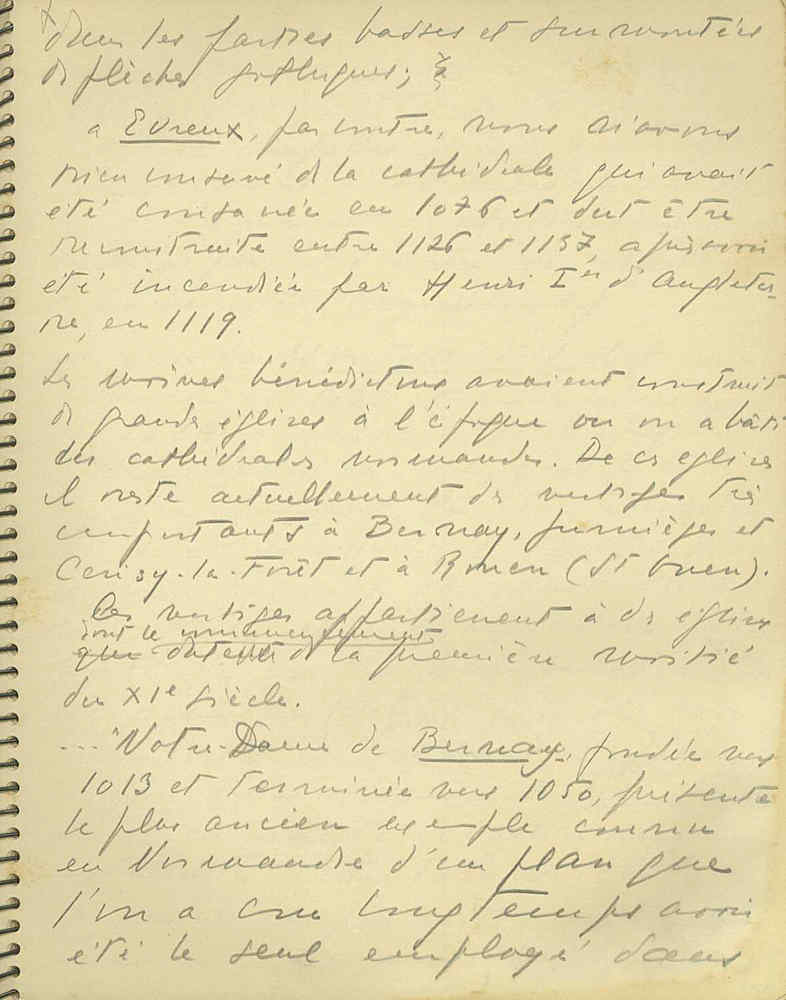 dans les parties basses et surmontées
de flèches gothiques;
a Evreux, par contre, nous n'avons
rien conservé de la cathédrale qui avait
été consacrée en 1076 et dut être
reconstruite entre 1126 et 1157, après avoir
été incendiée par Henri Ier d'Angleter-
re, en 1119.
Les moines bénédictins avaient construit
de grandes églises à l'époque où on a bâti
les cathédrales normandes. De ces eglises
il reste actuellement des vestiges très
importants à Bernay, Jumièges et
Cerisy-la-Forêt et à Rouen (St Ouen).
Ces vestiges appartienent à des eglises
dont le commencement
que date de la première moitié
du XIe siècle.
... "Notre-Dame de Bernay, fondée vers
1013 et terminée vers 1050, présente
le plus ancien exemple connu
en Normandie d'un plan que
l'on a cru longtemps avoir
été le seul employé dans